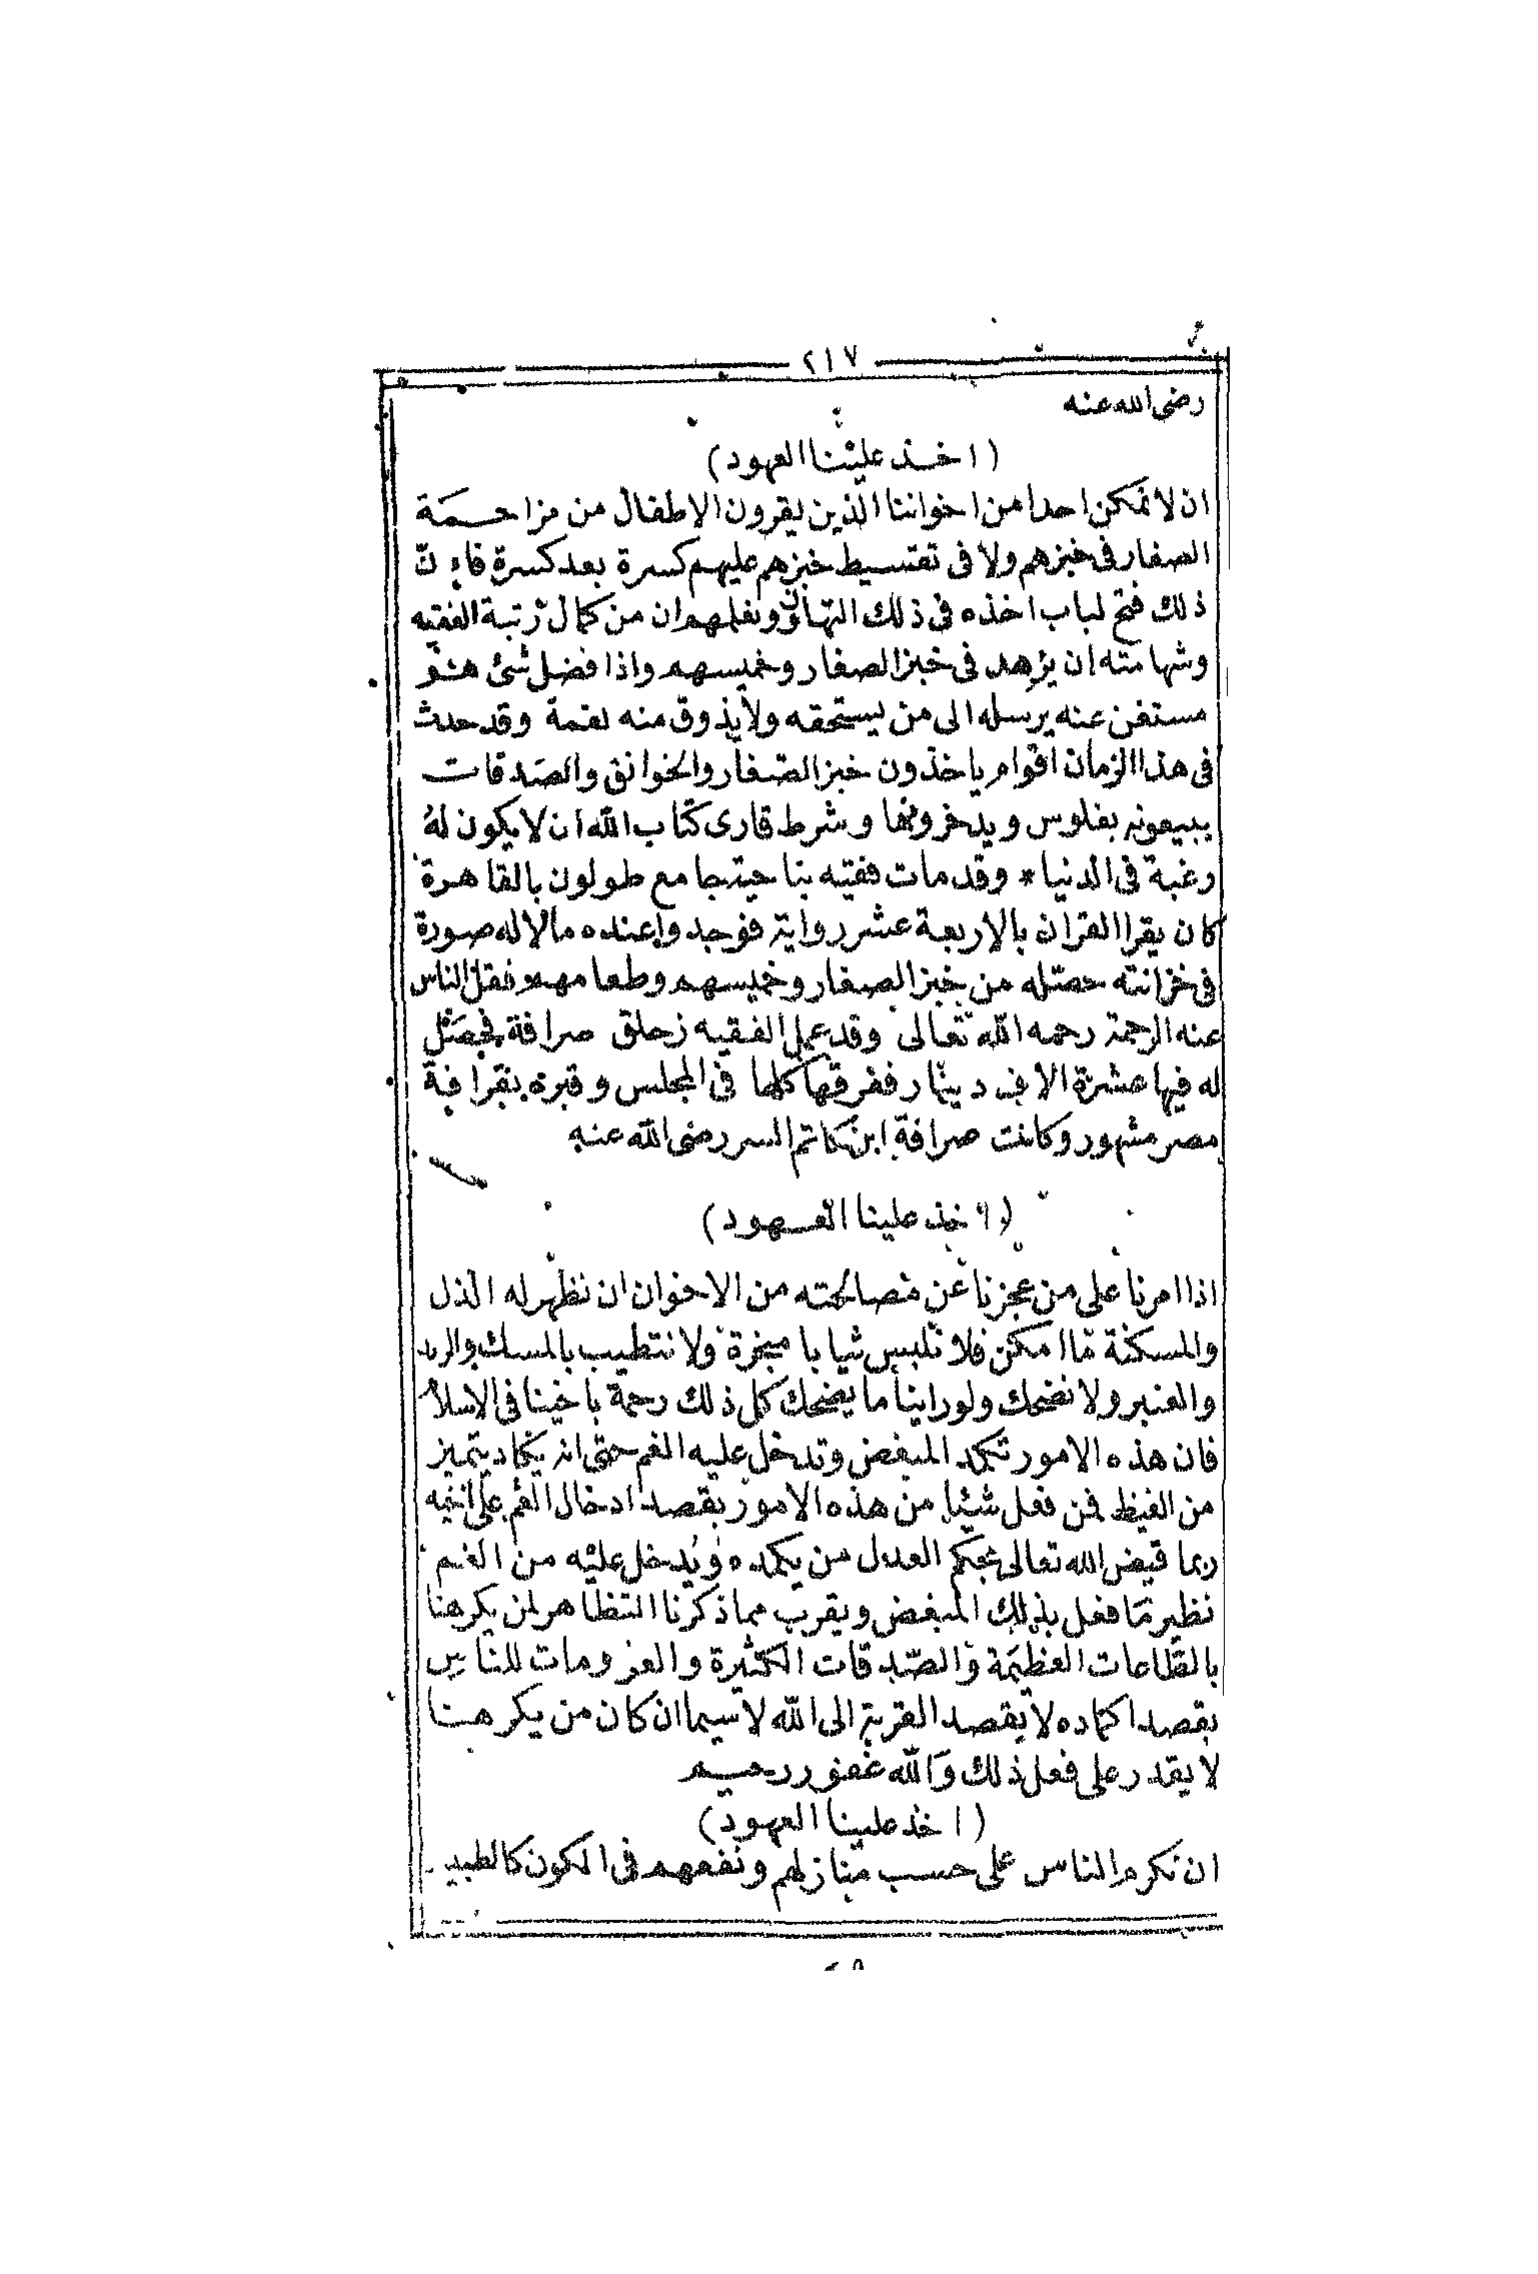 ٢١٧
رضى الله عنه
(اخذ علينا العهود)
ان لا نمكن احدا من اخواننا الذين يقرون الاطفال من مزاحمة
الصغار فى خبزهم ولا فى تقسيط خبزهم عليهم كسرة بعد كسرة فان
ذلك فتح لباب اخذه فى ذلك التهاون ونعلمهم ان من كمال رتبة الفقيه
وشهامته ان يزهد فى خبز الصغار وخميسهم واذا فضل شئ هو
مستغن عنه يرسله الى من يستحقه ولا يذوق منه لقمة وقد حدث
فى هذا الزمان اقوام ياخذون خبز الصغار والخوانق والصدقات
يبيعونه بفلوس ويدخرونها وشرط قارى كتاب الله ان لا يكون له
رغبة فى الدنيا * وقد مات فقيه بناحية جامع طولون بالقاهرة
كان يقرا القران بالاربعة عشر رواية فوجدوا عنده مالا له صورة
فى خزانته حصله من خبز الصغار وخميسهم وطعامهم فقل الناس
عنه الرحمة رحمه الله تعالى وقد عمل الفقيه زحلق صرافة فحصل
له فيها عشرة الاف دينار ففرقها كلها فى المجلس وقبره بقرافة
مصر مشهور وكانت صرافة ابن كاتم السر رضى الله عنه
(اخذ علينا العهود)
اذا امرنا على من عجزنا عن مصالحته من الاخوان ان نظهر له الذل
والمسكنة ما امكن فلا نلبس ثيابا مبخرة ولا نتطيب بالمسك والزبد
والعنبر ولا نضحك ولو راينا ما يضحك كل ذلك رحمة باخينا فى الاسلام
فان هذه الامور تكمد المبغض وتدخل عليه الغم حتى انه يكاد يتميز
من الغيظ فمن فعل شيئا من هذه الامور بقصد ادخال الغم على اخيه
ربما قيض الله تعالى بحكم العدل من يكمده ويدخل عليه من الغم
نظير ما فعل بذلك المبغض ويقرب مما ذكرنا التظاهر لمن يكرهنا
بالطاعات العظيمة والصدقات الكثيرة والعزومات للناس
بقصد اكماده لا بقصد القربة الى الله لا سيما ان كان من يكرهنا
لا يقدر على فعل ذلك والله غفور رحيم
(اخذ علينا العهود)
ان نكرم الناس على حسب منازلهم ونفعهم فى الكون كالطبيب